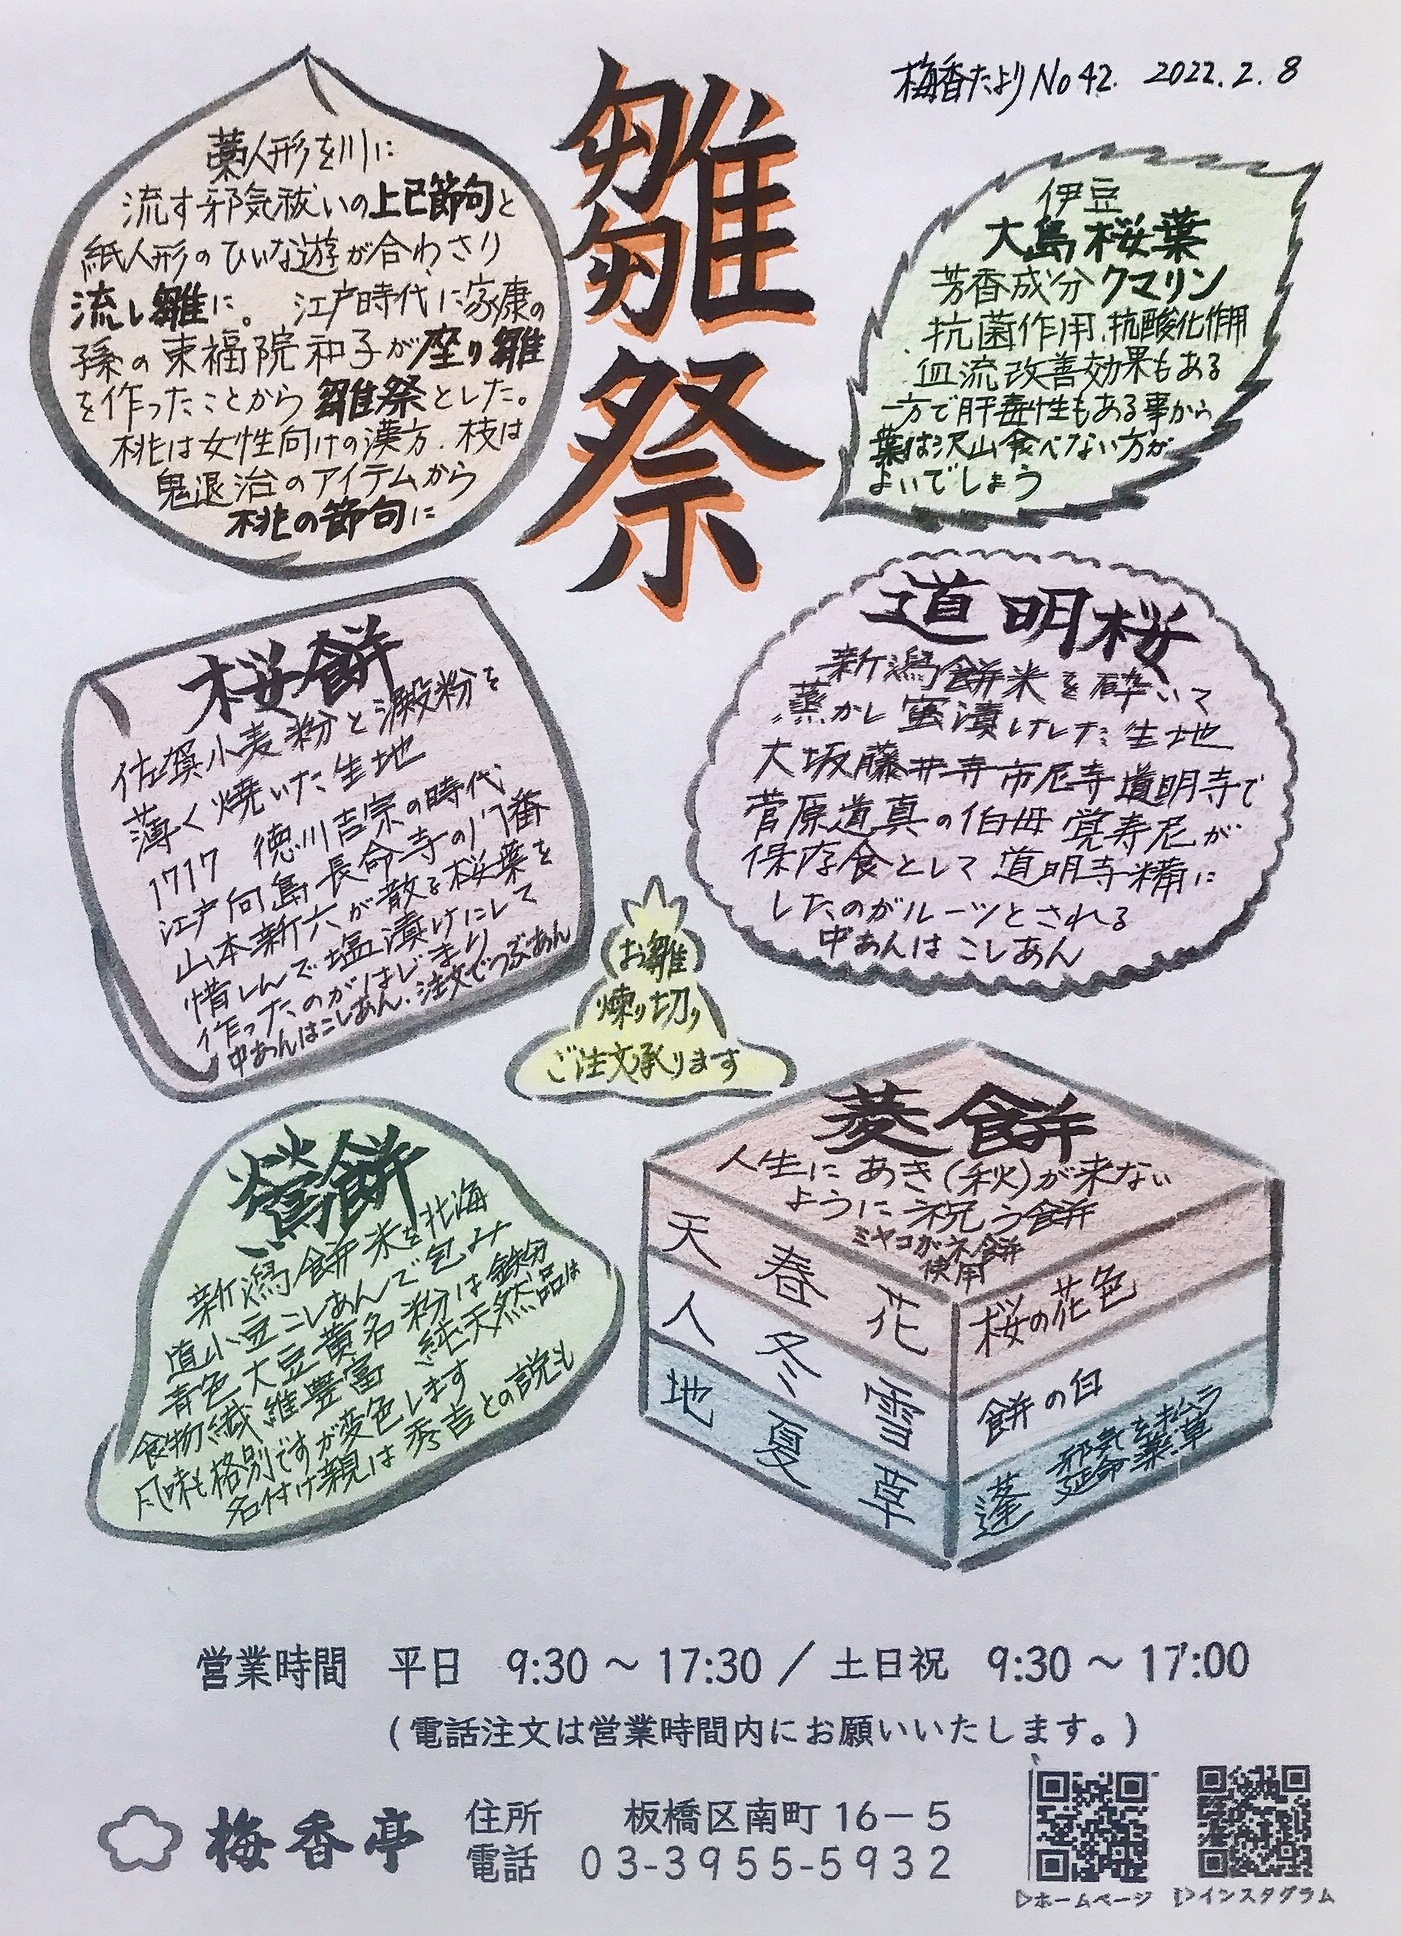 梅香たより No 42. 2022. 2. 8
雛祭
藁人形を川に
流す邪気祓いの上巳節句と
紙人形のひいな遊が合わさり
流し雛に。江戸時代に家康の
孫の東福院和子が座り雛
を作ったことから雛祭とした。
桃は女性向けの漢方.枝は
鬼退治のアイテムから
桃の節句に
伊豆
大島桜葉
芳香成分クマリン
抗菌作用.抗酸化作用
血流改善効果もある
一方で肝毒性もある事から
葉は沢山食べない方が
よいでしょう
桜餅
佐賀小麦粉と澱粉を
薄く焼いた生地
1717 徳川吉宗の時代
江戸向島長命寺の門番
山本新六が散る桜葉を
惜しんで塩漬けにして
作ったのがはじまり
中あんはこしあん.注文でつぶあん
道明桜
新潟餅米を砕いて
蒸かし蜜漬けした生地
大坂藤井寺市尼寺道明寺で
菅原道真の伯母覚寿尼が
保存食として道明寺糒に
したのがルーツとされる
中あんはこしあん
お雛
煉り切り
ご注文承ります
鶯餅
新潟餅米を北海
道小豆こしあんで包み
青色大豆黄名粉は鉄分
食物繊維豊富 純天然品は
風味も格別ですが変色します
名付け親は秀吉との説も
菱餅
人生にあき(秋)が来ない
ように祝う餅
ミヤコガネ餅
使用
天 春 花
人 冬 雪
地 夏 草
桜の花色
餅の白
蓬 邪気を払う
延命薬草
営業時間 平日 9:30 ～ 17:30 / 土日祝 9:30 ～ 17:00
(電話注文は営業時間内にお願いいたします。)
梅香亭
住所 板橋区南町 16－5
電話 03-3955-5932
▷ホームページ ▷インスタグラム